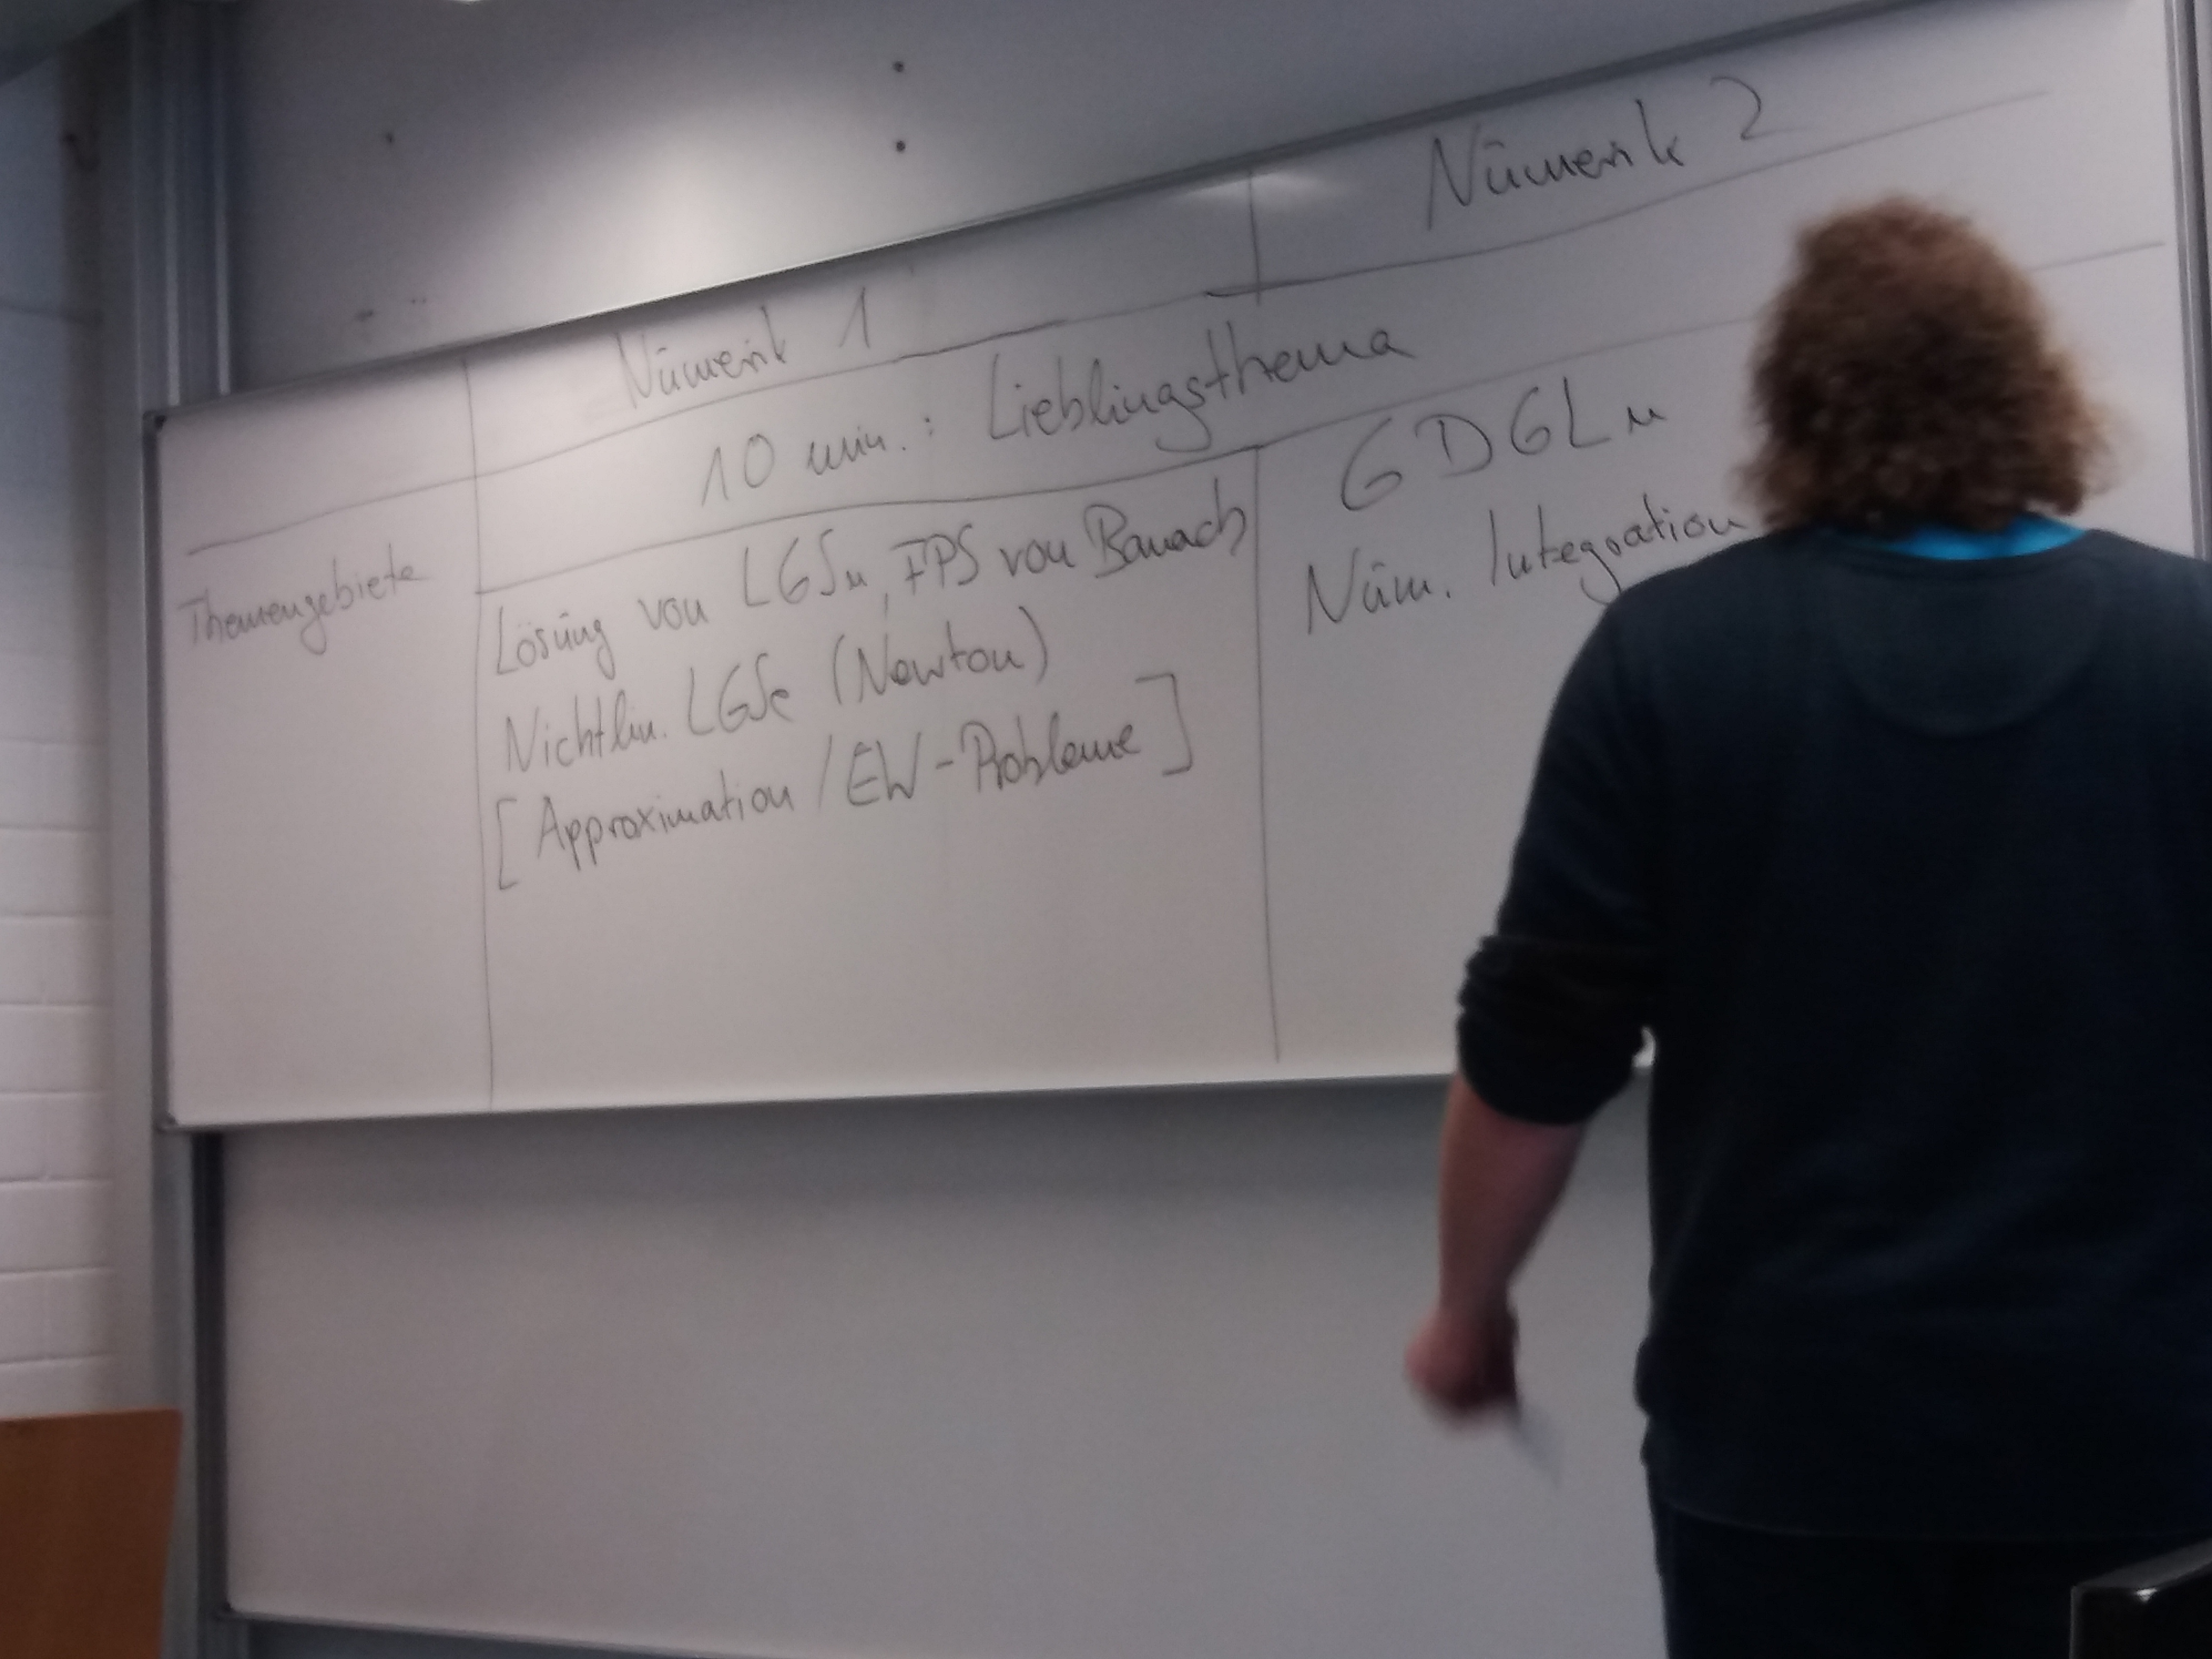 Numerik 1
Numerik 2
10 min.: Lieblingsthema
Themengebiete
Lösung von LGSn, FPS von Banach
Nichtlin. LGSe (Newton)
[Approximation / EW-Probleme]
GDGLn
Num. Integration